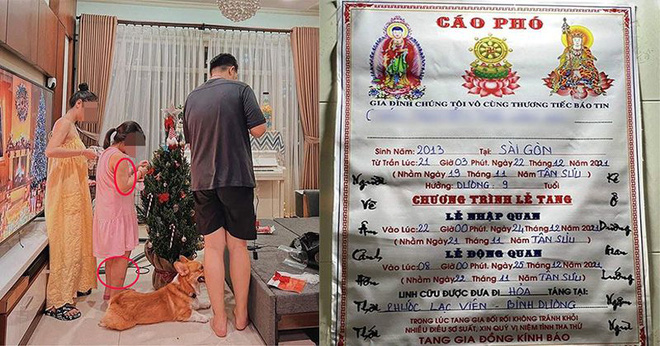 CÁO PHÓ
GIA ĐÌNH CHÚNG TÔI VÔ CÙNG THƯƠNG TIẾC BÁO TIN
(
Sinh Năm: 2013 Tại: SÀI GÒN
Từ Trần Lúc: 21 Giờ 03 Phút. Ngày 22 Tháng 12 Năm 2021
(Nhằm Ngày 19 Tháng 11 Năm TÂN SỬU)
Người Hưởng: DƯƠNG: 9 Tuổi Kẻ
Về CHƯƠNG TRÌNH LỄ TANG Ở
LỄ NHẬP QUAN
Âm Vào Lúc: 22 Giờ 00 Phút. Ngày 24 Tháng 12 Năm 2021 Dương
(Nhằm Ngày 21 Tháng 11 Năm TÂN SỬU)
Cảnh LỄ ĐỘNG QUAN
Vào Lúc: 08 Giờ 00 Phút. Ngày 25 Tháng 12 Năm 2021
Hồn (Nhằm Ngày 22 Tháng 11 Năm TÂN SỬU)
LINH CỬU ĐƯỢC ĐƯA ĐI HỎA TÁNG TẠI:
PHƯỚC LẠC VIÊN - BÌNH DƯƠNG
TRONG LÚC TANG GIA BỐI RỐI KHÔNG TRÁNH KHỎI
NHIỀU ĐIỀU SƠ SUẤT, XIN QUÝ VỊ NIỆM TÌNH THA THỨ
TANG GIA ĐỒNG KÍNH BÁO